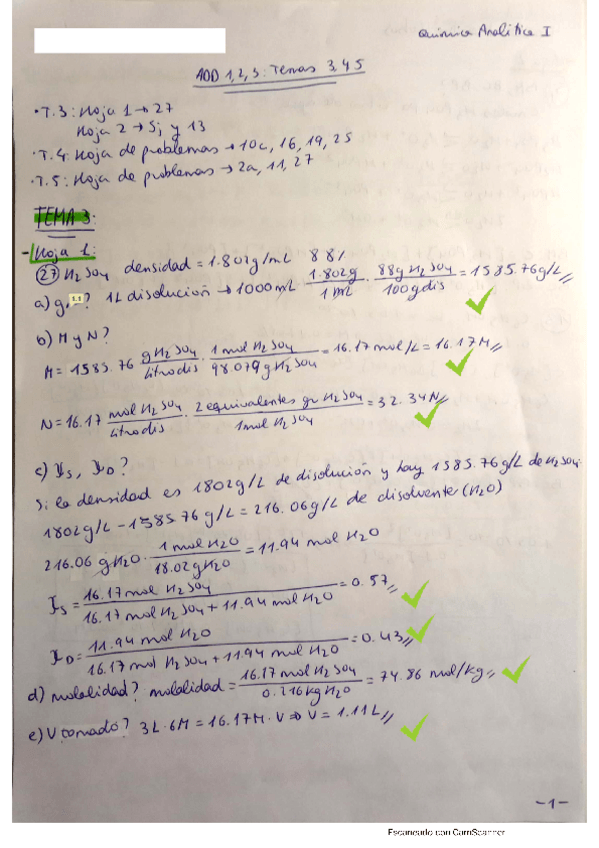 Química Analítica I
AOD 1, 2, 3: Temas 3, 4 5
• T.3: Hoja 1 → 27
Hoja 2 → 5j y 13
• T.4: Hoja de problemas → 10c, 16, 19, 25
• T.5: Hoja de problemas → 2a, 11, 27
TEMA 3:
- Hoja 1:
27 H2SO4 densidad = 1.802g/mL 88%
a) g/L? 1L disolución → 1000mL 1.802g/1mL · 88g H2SO4/100g dis = 1585.76g/L
b) M y N?
M = 1585.76 g H2SO4/Litro dis · 1 mol H2SO4/98.079g H2SO4 = 16.17 mol/L = 16.17M
N = 16.17 mol H2SO4/Litro dis · 2 equivalentes gr H2SO4/1mol H2SO4 = 32.34N
c) XS, XD?
Si la densidad es 1802g/L de disolución y hay 1585.76g/L de H2SO4.
1802g/L - 1585.76 g/L = 216.06g/L de disolvente (H2O)
216.06 g H2O · 1 mol H2O/18.02g H2O = 11.94 mol H2O
XS = 16.17 mol H2SO4/16.17 mol H2SO4 + 11.94 mol H2O = 0.57
XD = 11.94 mol H2O/16.17 mol H2SO4 + 11.94 mol H2O = 0.43
d) molalidad? molalidad = 16.17 mol H2SO4/0.216 kg H2O = 74.86 mol/kg
e) V tomado? 3L · 6M = 16.17M · V ⇒ V = 1.11L
-1-
Escaneado con CamScanner